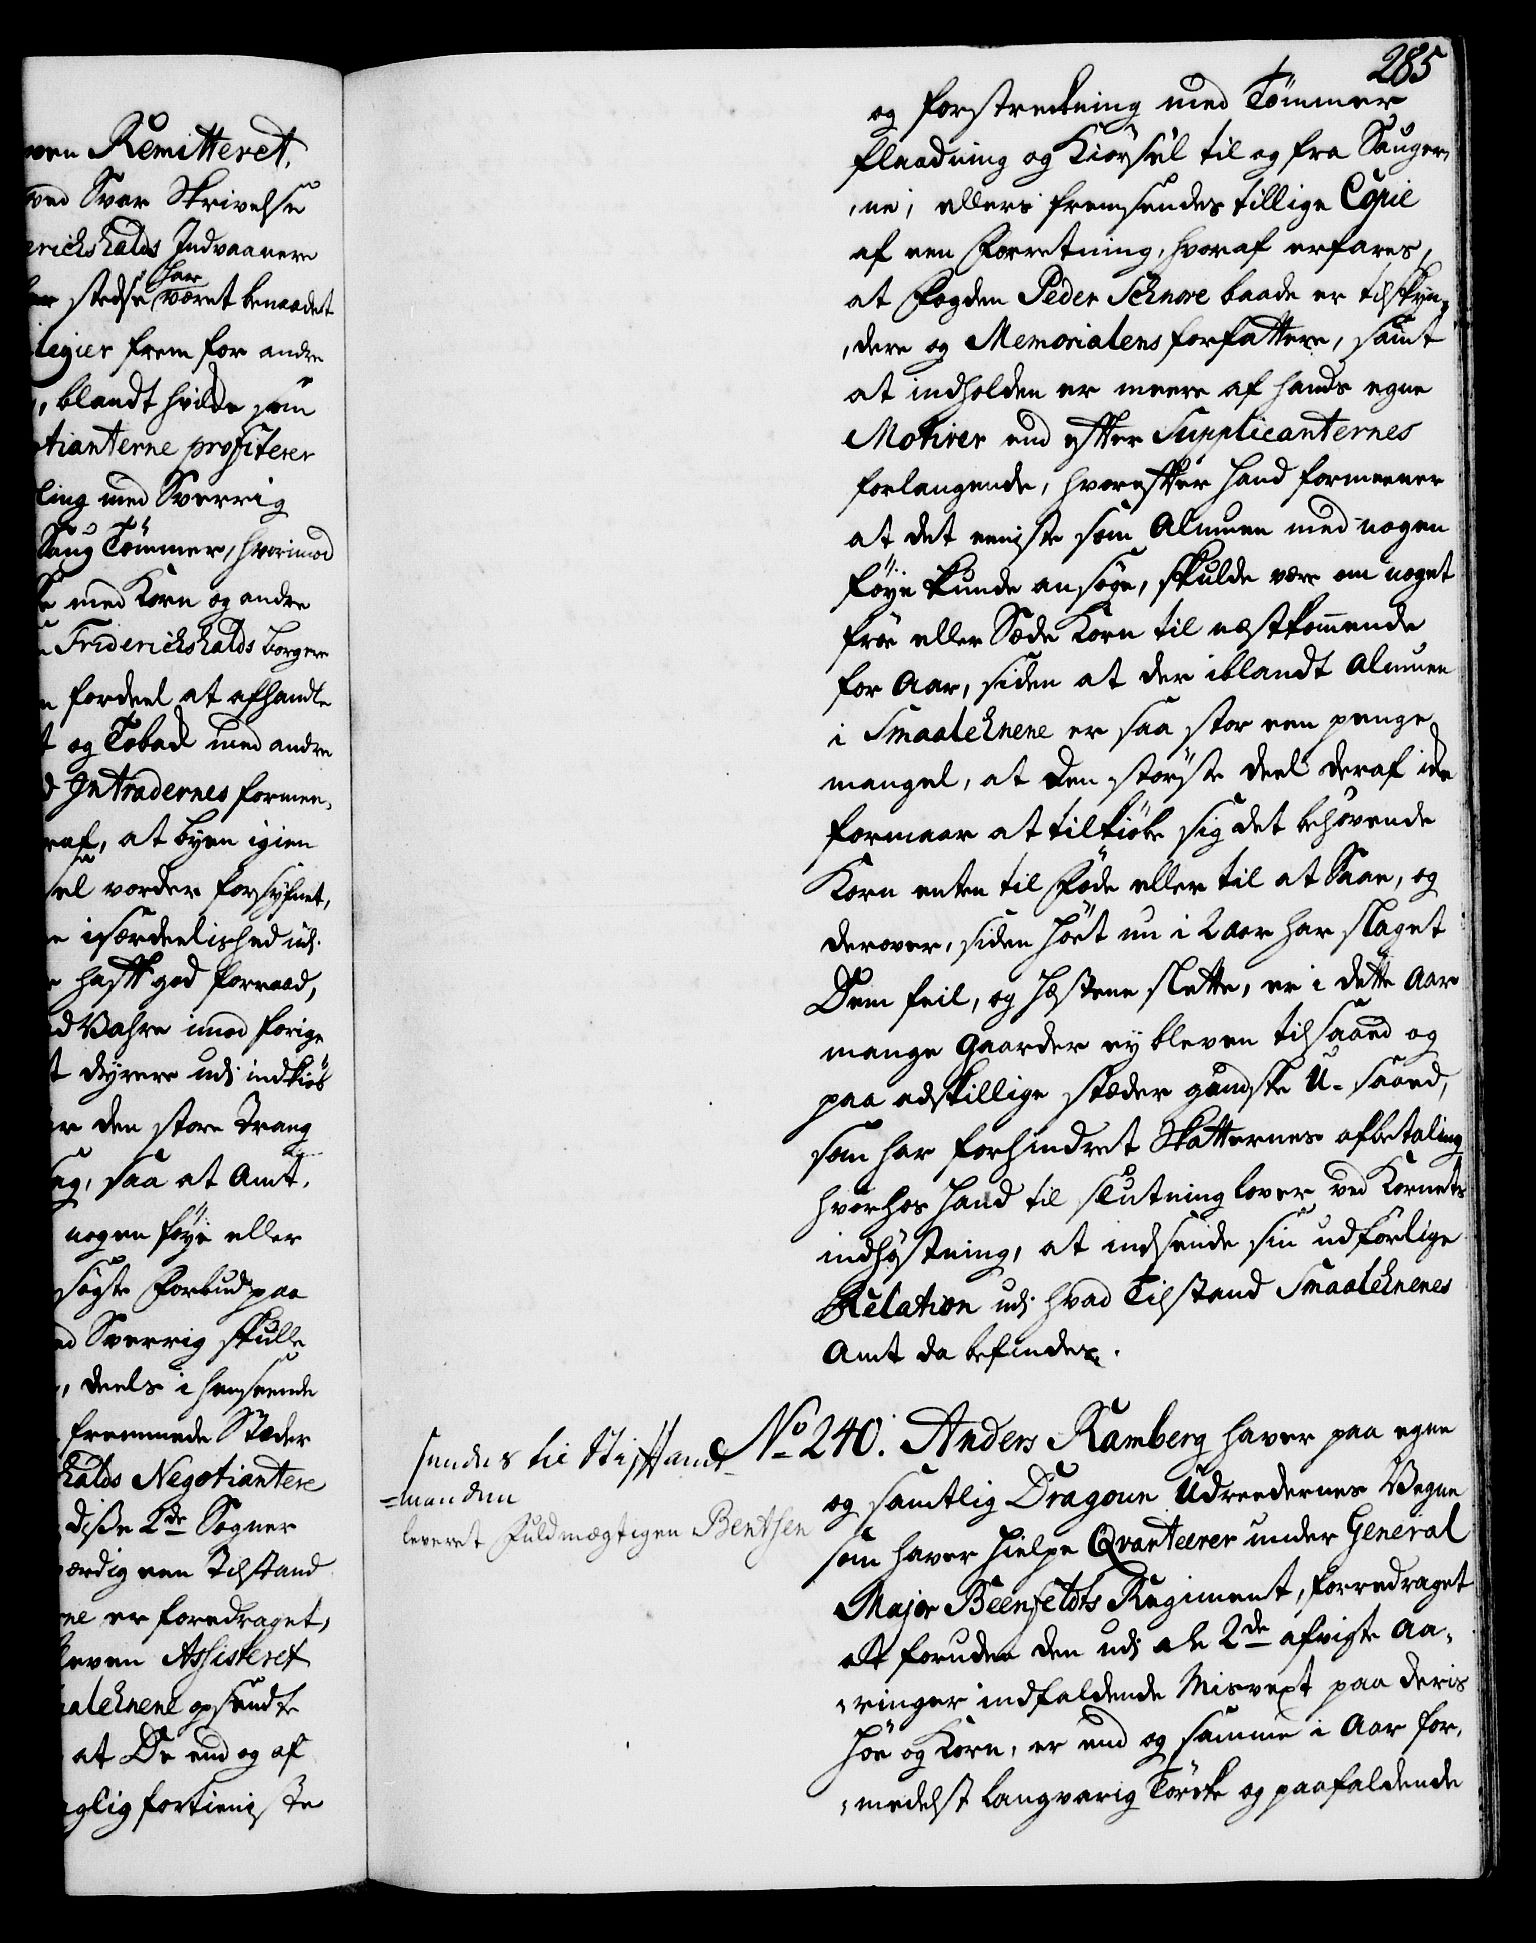 ven Remitteret,
ved Svar Skrivelse
erichshalds Indvaanere
stedse har været benaadet
legier frem for andre
, blandt hvilke som
tianterne profiterer
ling med Sverrig
Saug Tømmer, hvorimod
med Korn og andre
Friderichshalds borgere
fordeel at afhandle
og Tobak med andre
Intradernes formee,
raf, at byen igien
sel vorder forsÿnet,
isærdeelished udj
hafft god forraad,
Vahre imod forige
dÿrere udj indkiøb
den store Trang
saa at Amt,
nogen føye eller
søgte Forbud paa
Sverrig skulle
, deels i henseende
fremmede Stæder
halds Negotiantere
diße 2de Sogner
værdig een Tilstand
er foredraget,
leven Assisteret
lehnene opsendte
at De end og af
aglig fortieniste
285
og forstrækning med Tømmer
flaadning og Kiørsel til og fra Sauger,
,ne, ellers fremsendes tillige Copie
af een Forretning, hvoraf erfares,
at Fogden Peder Schnore baade er tilskyn,
,dere og Memorialens forfattere, samt
at indholden er meere af hands egne
Motiver end efter Supplicanternes
forlangende, hvorefter hand formeener
at det eeniste som Almuen med nogen
føye kunde ansøge, skulde være om noget
frøe eller Sæde Korn til næstkommende
for Aar, siden at der iblandt Almuen
i Smaalehnene er saa stor een penge
mangel, at den største deel deraf icke
formaar at tilkiøbe sig det behøvende
Korn enten til Føde eller til at Saae, og
derover, siden høet nu i 2 aar har slaget
Dem feil, og hæstene slette, er i dette Aar
mange Gaarder ey bleven tilsaaed og
paa adskillige stæder gandske U-saaed,
som har forhindret Skatternes afbetaling
hvorhos hand til slutning lover ved Kornets
indhøstning, at indsende sin udførlige
Relation udj hvad Tilstand Smaalehnenes
Amt da befindes.
sendes til Stiftamt
=manden
leveret Fuldmægtigen Bentsen
No 240. Anders Ramberg haver paa egne
og samtlig Dragoun Udreedernes Vegne
som haver hielpe Qvarteerer under General
Major Beenfeldts Regiment, forredraget
at foruden den udj ale 2de afvigte Aa,
,ringer indfaldende Misvext paa deris
høe og Korn, er end og samme i Aar for,
,medelst langvarig Tørcke og paafaldende